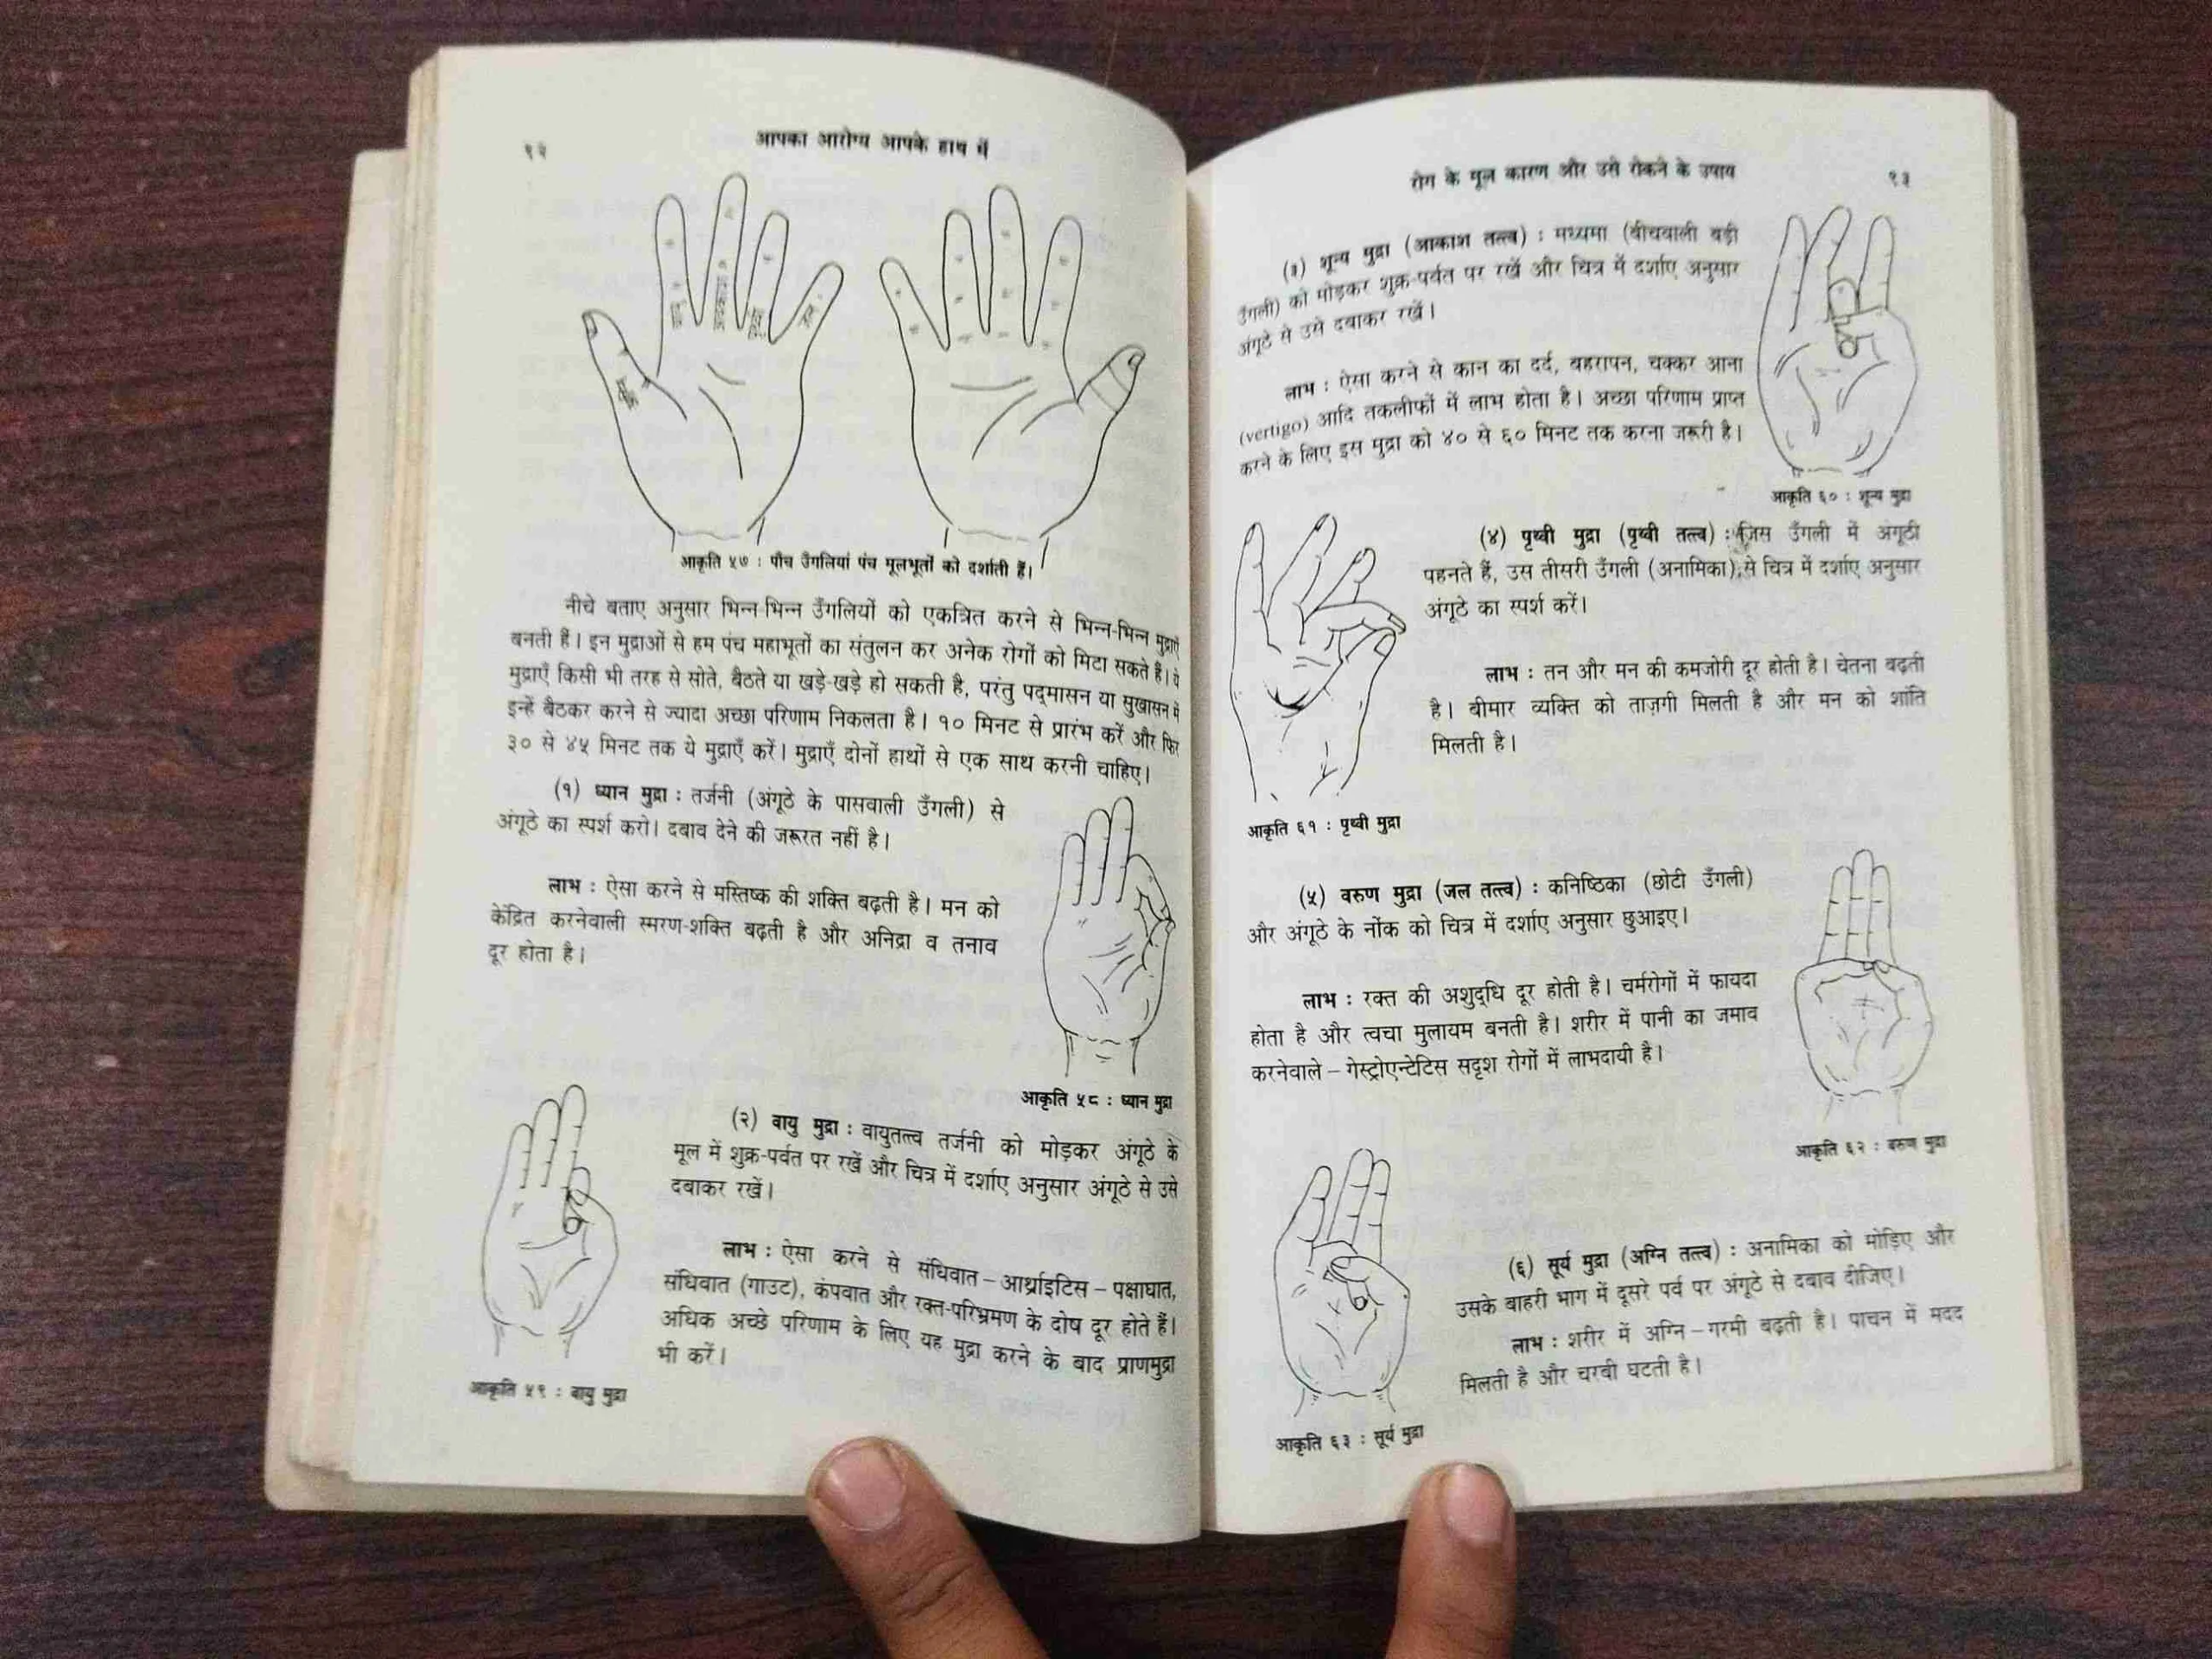 ९२
आपका आरोग्य आपके हाथ में
आकृति ५७ : पाँच उँगलियां पंच मूलभूतों को दर्शाती हैं।
नीचे बताए अनुसार भिन्न-भिन्न उँगलियों को एकत्रित करने से भिन्न-भिन्न मुद्राएँ
बनती हैं। इन मुद्राओं से हम पंच महाभूतों का संतुलन कर अनेक रोगों को मिटा सकते हैं। ये
मुद्राएँ किसी भी तरह से सोते, बैठते या खड़े-खड़े हो सकती है, परंतु पद्मासन या सुखासन में
इन्हें बैठकर करने से ज्यादा अच्छा परिणाम निकलता है। १० मिनट से प्रारंभ करें और फिर
३० से ४५ मिनट तक ये मुद्राएँ करें। मुद्राएँ दोनों हाथों से एक साथ करनी चाहिए।
(१) ध्यान मुद्रा : तर्जनी (अंगूठे के पासवाली उँगली) से
अंगूठे का स्पर्श करो। दबाव देने की जरूरत नहीं है।
लाभ : ऐसा करने से मस्तिष्क की शक्ति बढ़ती है। मन को
केंद्रित करनेवाली स्मरण-शक्ति बढ़ती है और अनिद्रा व तनाव
दूर होता है।
आकृति ५८ : ध्यान मुद्रा
(२) वायु मुद्रा : वायुतत्त्व तर्जनी को मोड़कर अंगूठे के
मूल में शुक्र-पर्वत पर रखें और चित्र में दर्शाए अनुसार अंगूठे से उसे
दबाकर रखें।
लाभ : ऐसा करने से संधिवात – आर्थ्राइटिस – पक्षाघात,
संधिवात (गाउट), कंपवात और रक्त-परिभ्रमण के दोष दूर होते हैं।
अधिक अच्छे परिणाम के लिए यह मुद्रा करने के बाद प्राणमुद्रा
भी करें।
आकृति ५९ : वायु मुद्रा
रोग के मूल कारण और उसे रोकने के उपाय
९३
(३) शून्य मुद्रा (आकाश तत्त्व) : मध्यमा (बीचवाली बड़ी
उँगली) को मोड़कर शुक्र-पर्वत पर रखें और चित्र में दर्शाए अनुसार
अंगूठे से उसे दबाकर रखें।
लाभ : ऐसा करने से कान का दर्द, बहरापन, चक्कर आना
(vertigo) आदि तकलीफों में लाभ होता है। अच्छा परिणाम प्राप्त
करने के लिए इस मुद्रा को ४० से ६० मिनट तक करना जरूरी है।
आकृति ६० : शून्य मुद्रा
(४) पृथ्वी मुद्रा (पृथ्वी तत्त्व) : जिस उँगली में अंगूठी
पहनते हैं, उस तीसरी उँगली (अनामिका) से चित्र में दर्शाए अनुसार
अंगूठे का स्पर्श करें।
लाभ : तन और मन की कमजोरी दूर होती है। चेतना बढ़ती
है। बीमार व्यक्ति को ताज़गी मिलती है और मन को शांति
मिलती है।
आकृति ६१ : पृथ्वी मुद्रा
(५) वरुण मुद्रा (जल तत्त्व) : कनिष्ठिका (छोटी उँगली)
और अंगूठे के नोंक को चित्र में दर्शाए अनुसार छुआइए।
लाभ : रक्त की अशुद्धि दूर होती है। चर्मरोगों में फायदा
होता है और त्वचा मुलायम बनती है। शरीर में पानी का जमाव
करनेवाले – गेस्ट्रोएन्टेटिस सदृश रोगों में लाभदायी है।
आकृति ६२ : वरुण मुद्रा
(६) सूर्य मुद्रा (अग्नि तत्त्व) : अनामिका को मोड़िए और
उसके बाहरी भाग में दूसरे पर्व पर अंगूठे से दबाव दीजिए।
लाभ : शरीर में अग्नि – गरमी बढ़ती है। पाचन में मदद
मिलती है और चरबी घटती है।
आकृति ६३ : सूर्य मुद्रा